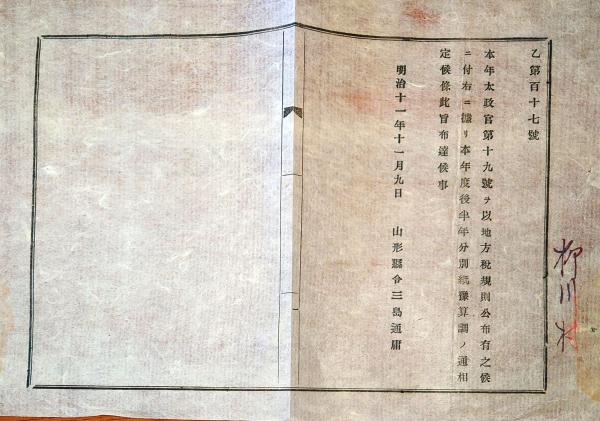 乙第百十七號
本年太政官第十九號ヲ以地方稅規則公布有之候
ニ付右ニ據リ本年度後半年分別紙豫算調ノ通相
定候條此旨布達候事
明治十一年十一月九日　山形縣令三島通庸
柳川村